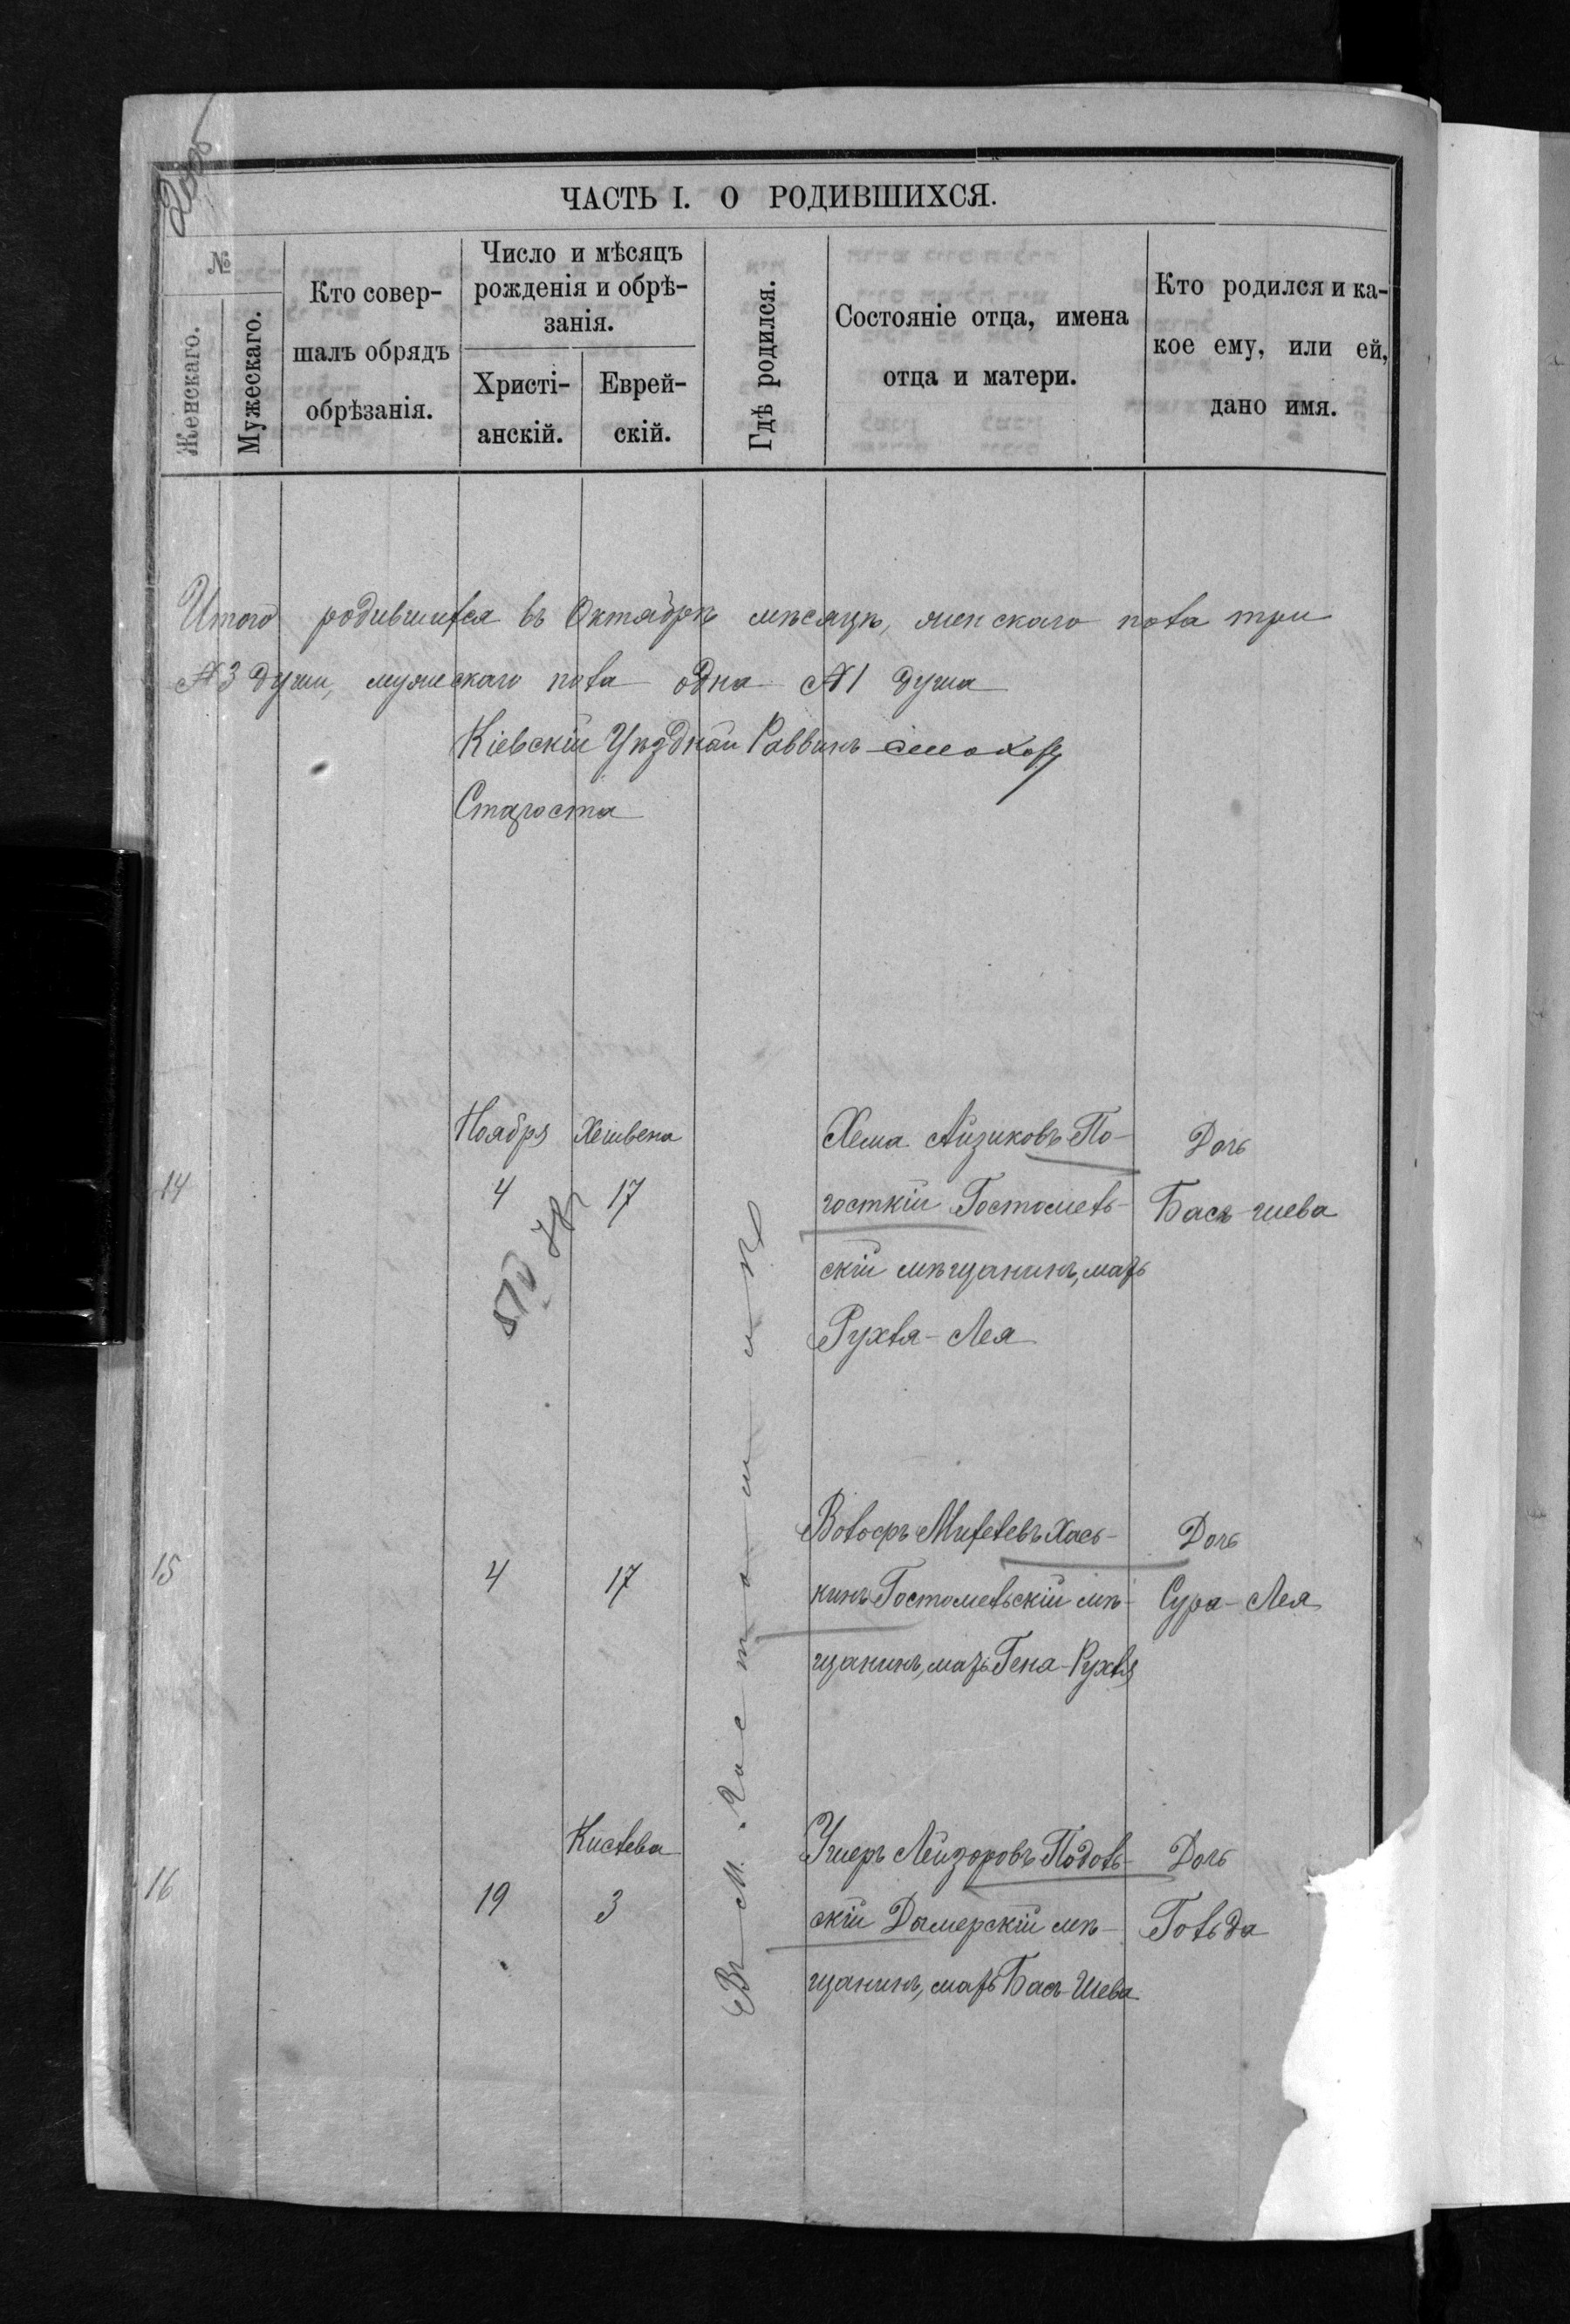 ЧАСТЬ I. О РОДИВШИХСЯ.
№
Женскаго.
Мужескаго.
Кто совер-
шалъ обрядъ
обрѣзанія.
Число и мѣсяцъ
рожденія и обрѣ-
занія.
Христі-
анскій.
Еврей-
скій.
Гдѣ родился.
Состояніе отца, имена
отца и матери.
Кто родился и ка-
кое ему, или ей,
дано имя.
Итого родившихся въ Октябрѣ мѣсяцѣ, женскаго пола три
№ 3 души, мужескаго пола одна № 1 душа
Кіевскій Уѣздный Раввинъ
Староста
Ноября Хешвена
14 4 17
Въ М. Гостомлѣ
Хема Айзиковъ По-
госткій Гостомель-
скій мѣщанинъ, мать
Рухля-Лея
Дочь
Бася-шева
15 4 17
Вольфъ Михелевъ Хась-
кинъ Гостомельскій мѣ-
щанинъ, мать Гена-Рухля
Дочь
Сура-Лея
Кислева
16 19 3
Ушеръ Лейзоровъ Подоль-
скій Дымерскій мѣ-
щанинъ, мать Бася-Шева
Дочь
Гольда